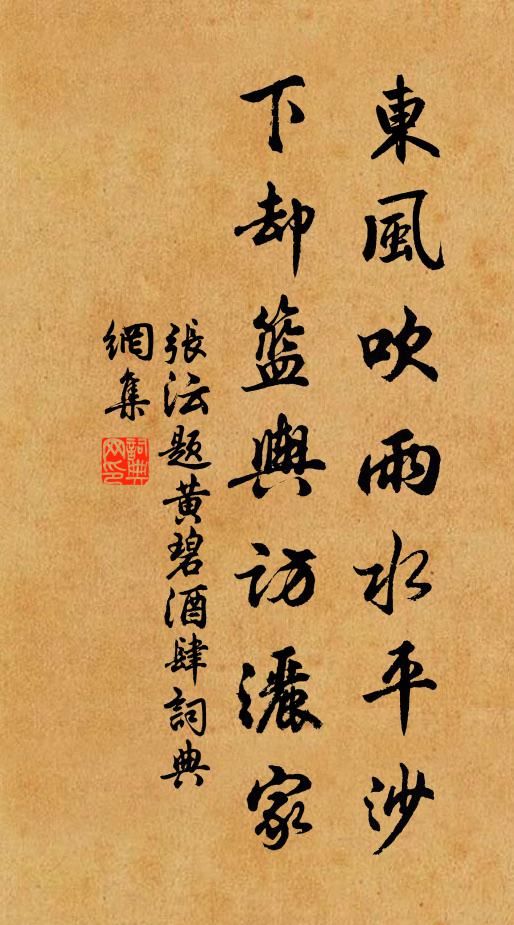 東風吹雨水平沙
下却籃輿訪灑家
張沄題黄碧酒肆詞典
網集
詞典網印